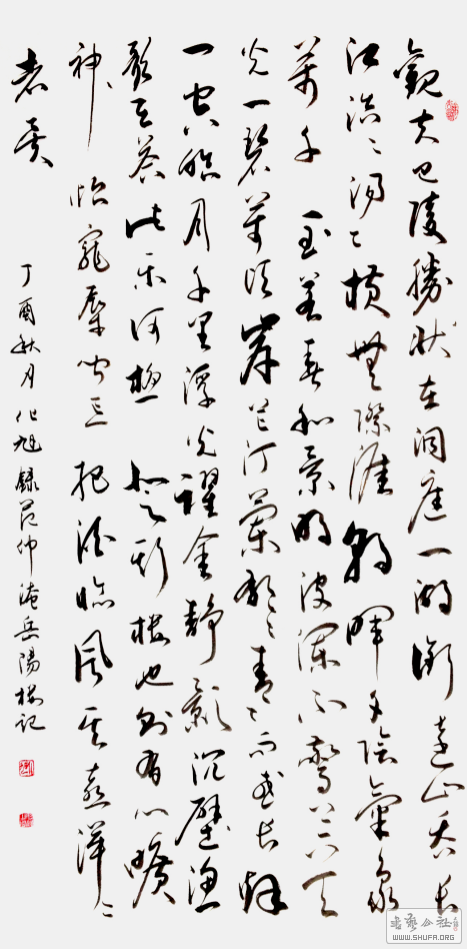 觀夫巴陵勝狀在洞庭一湖銜遠山吞長
江浩々湯々橫無際涯朝暉夕陰氣象
萬千至若春和景明波瀾不驚上下天
光一碧萬頃岸芷汀蘭郁々青々而或長煙
一空皓月千里浮光躍金靜影沉璧漁
歌互答此樂何極登斯樓也則有心曠
神怡寵辱皆忘把酒臨風其喜洋々
者矣
丁酉秋月化旭錄范仲淹岳陽樓記
WWW.SHUFA.ORG